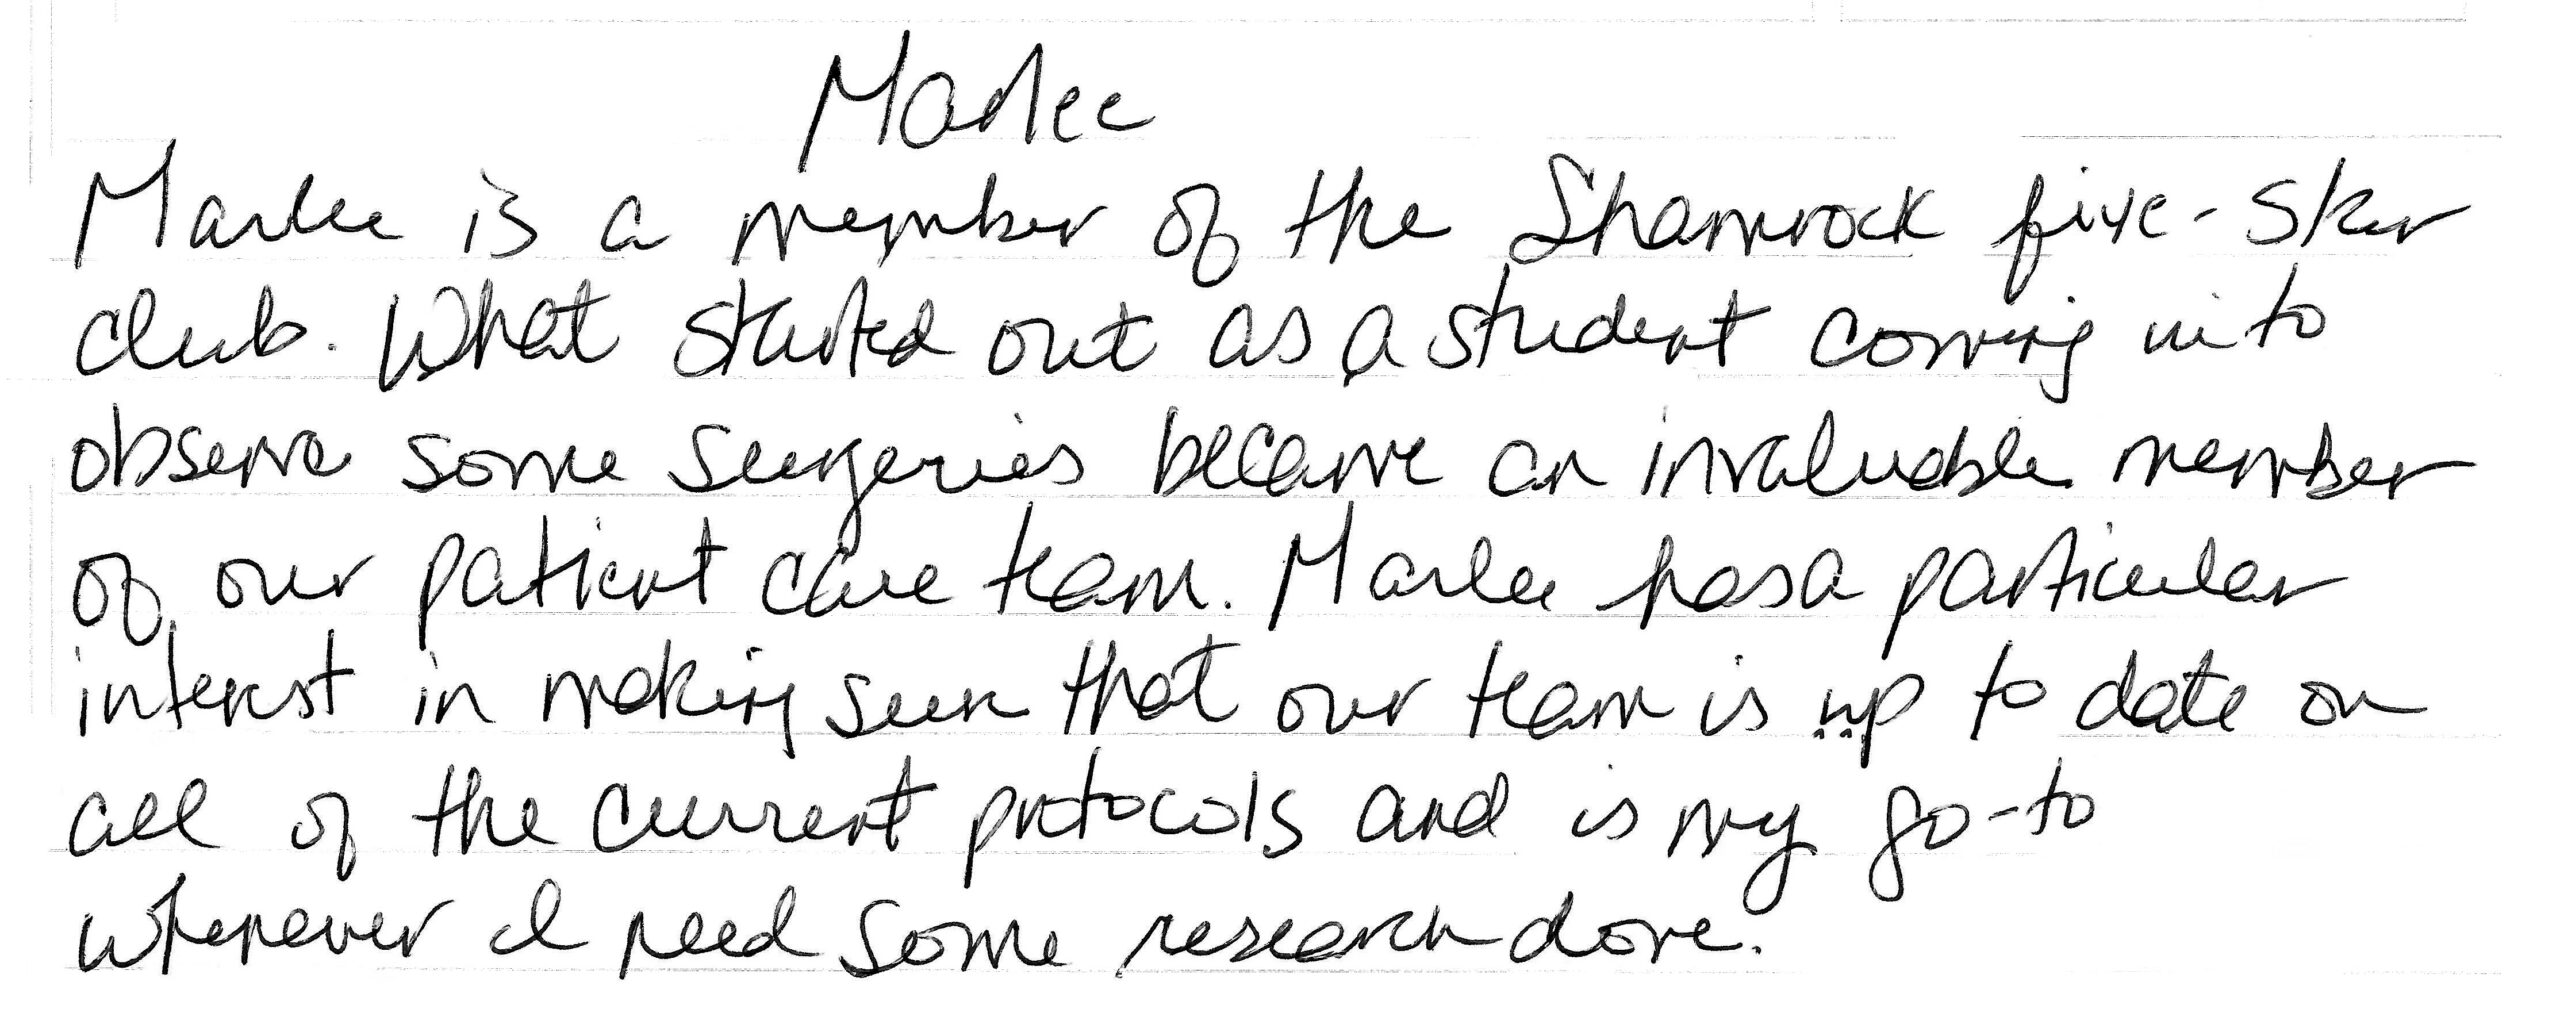 Marlee
Marlee is a member of the Shamrock five-star
club. What started out as a student coming in to
observe some surgeries became an invaluable member
of our patient care team. Marlee has a particular
interest in making sure that our team is up to date on
all of the current protocols and is my go-to
whenever I need some research done.